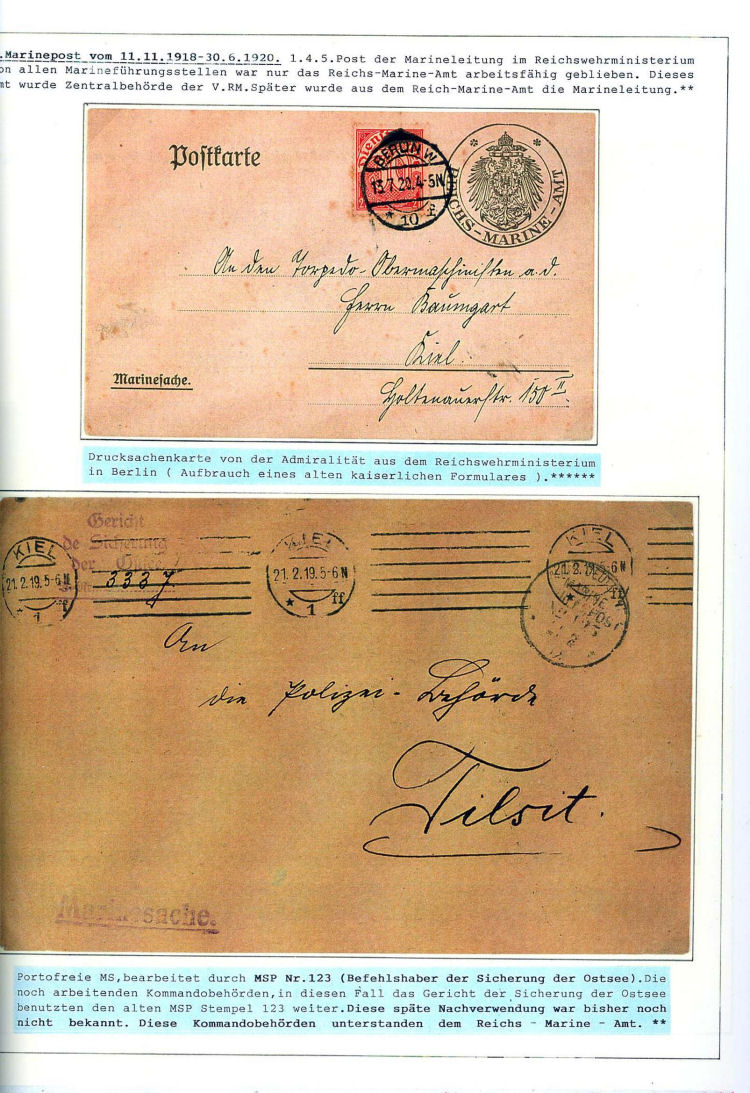 .Marinepost vom 11.11.1918-30.6.1920. 1.4.5.Post der Marineleitung im Reichswehrministerium
on allen Marineführungsstellen war nur das Reichs-Marine-Amt arbeitsfähig geblieben. Dieses
mt wurde Zentralbehörde der V.RM.Später wurde aus dem Reich-Marine-Amt die Marineleitung.**
Postkarte
BERLIN W
13.7.20.4-5N
* 10 f
REICHS-MARINE-AMT
An den Torpedo-Obermaschinisten a.d.
Herrn Baumgart
Kiel.
Marinesache.
Holtenauerstr. 150 II
Drucksachenkarte von der Admiralität aus dem Reichswehrministerium
in Berlin ( Aufbrauch eines alten kaiserlichen Formulares ).******
Gericht
de Sicherung
der
KIEL
21.2.19.5-6N
* 1 ff
3337
KIEL
21.2.19.5-6N
* 1 ff
KIEL
21.2.19.5-6N
ff
MARINE
POST
An
die Polizei-Behörde
Tilsit.
Marinesache.
Portofreie MS,bearbeitet durch MSP Nr.123 (Befehlshaber der Sicherung der Ostsee).Die
noch arbeitenden Kommandobehörden,in diesen Fall das Gericht der Sicherung der Ostsee
benutzten den alten MSP Stempel 123 weiter.Diese späte Nachverwendung war bisher noch
nicht bekannt. Diese Kommandobehörden unterstanden dem Reichs - Marine - Amt. **